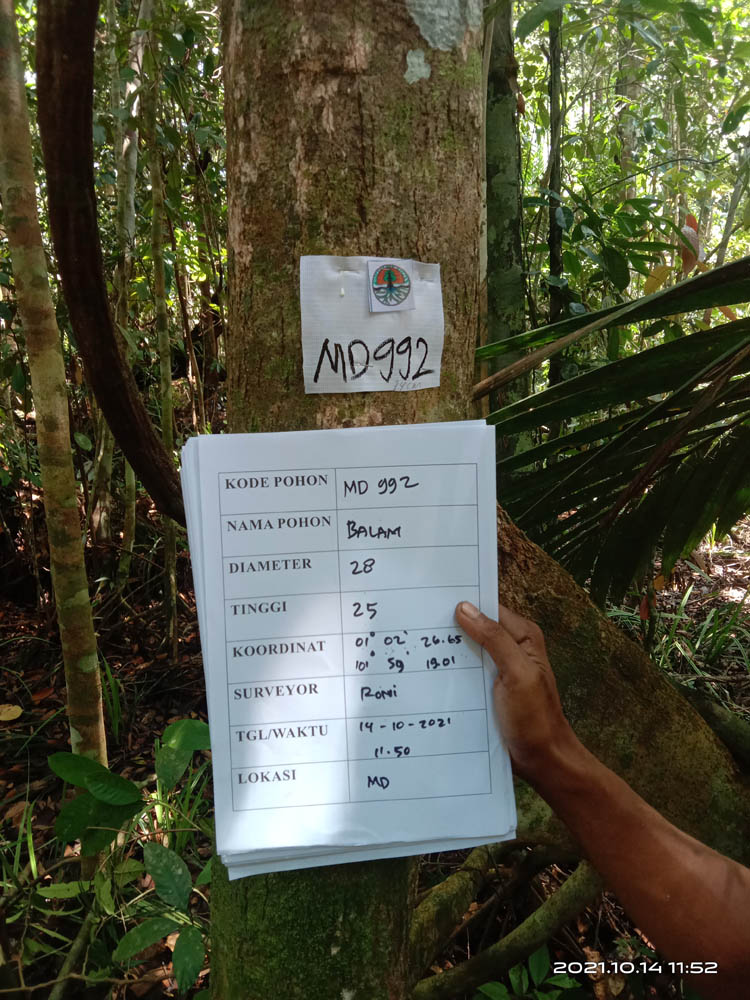 MD992
KODE POHON MD 992
NAMA POHON BALAM
DIAMETER 28
TINGGI 25
KOORDINAT 01° 02' 26.65
101° 59' 19.01
SURVEYOR Roni
TGL/WAKTU 14-10-2021
11.50
LOKASI MD
2021.10.14 11:52